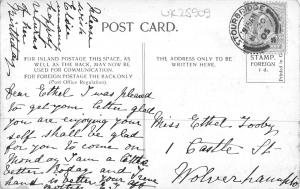 UK25909
POST CARD.
STOURBRIDGE
FOR INLAND POSTAGE THIS SPACE, AS
WELL AS THE BACK, MAY NOW BE
USED FOR COMMUNICATION.
FOR FOREIGN POSTAGE THE BACK ONLY
(Post Office Regulation).
THE ADDRESS ONLY TO
BE WRITTEN HERE.
STAMP.
FOREIGN
1d.
Please
wish
Elsie
many
happy
Birthday
Dear Ethel I was pleased
to get your letter glad
you are enjoying your
self shall be glad
for you to come on
Monday I am a little
better today and
hand is better your
Miss Ethel Tooby
1 Castle St
Wolverhampton